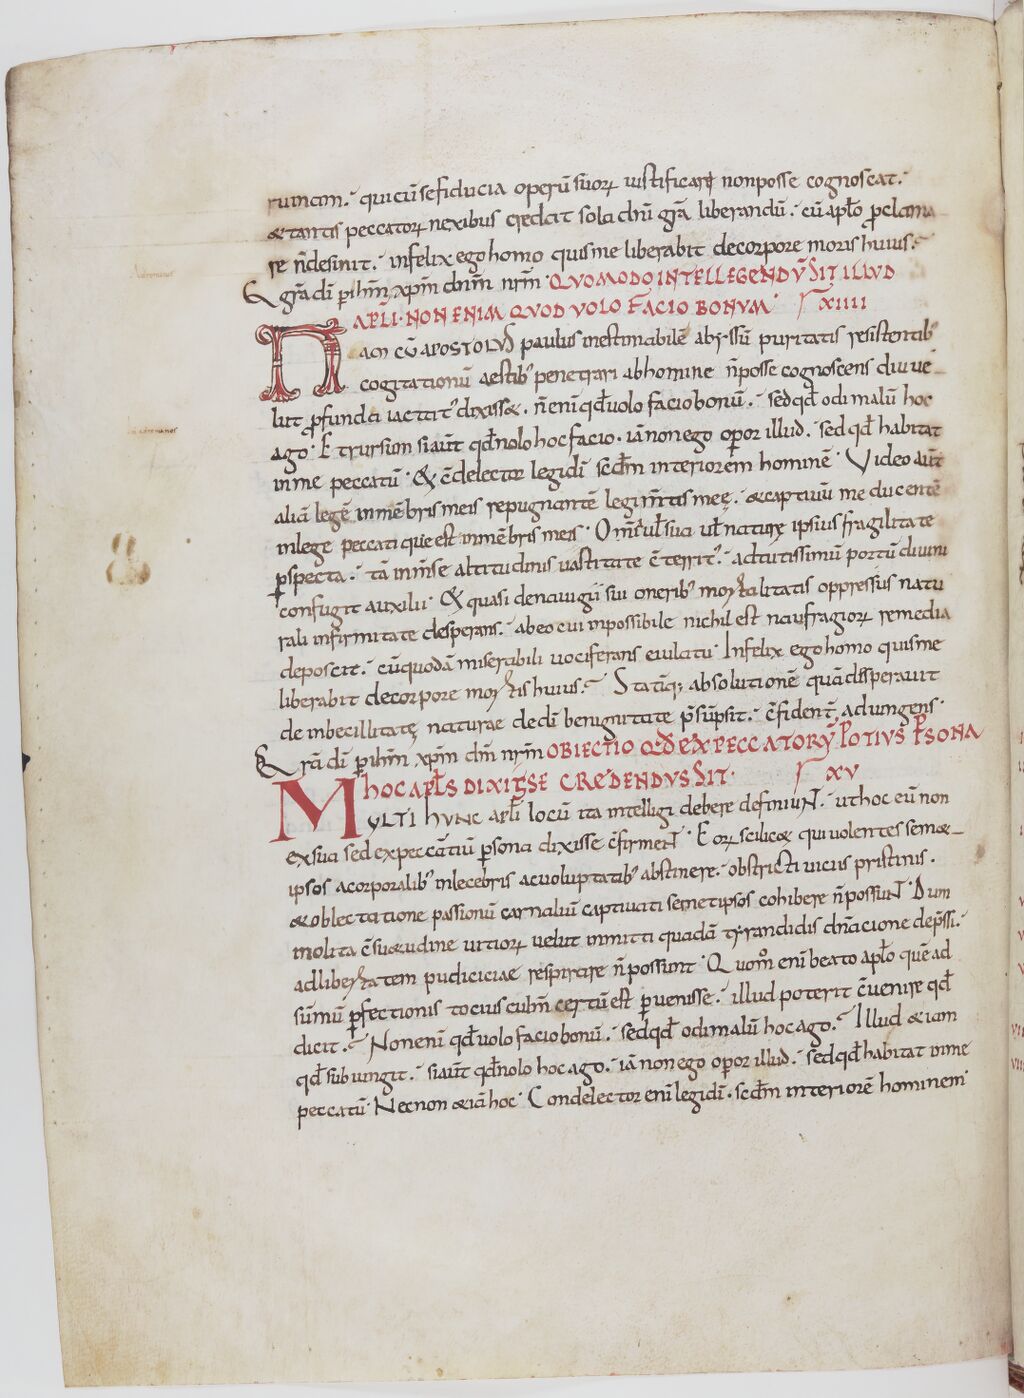 rum cm. qui cū se fiducia operū suoꝝ iustificare non posse cognoscat.
& tantis peccatoꝝ nexibus credat sola dn̄i gr̄a liberandū. cū apl̄o ꝓclama
re n̄ desinit. infelix ego homo quis me liberabit de corpore mortis huius.
& gr̄a dī ꝑ ih̄m xp̄m dn̄m nr̄m. QUOMODO INTELLEGENDŪ SIT ILLUD
APL̄I. NON ENIM QUOD VOLO FACIO BONUM XIIII
Nam cū APOSTOLUS paulus inestimabilē abyssū puritatis resistentib;
cogitationū aestib; penetrari ab homine n̄ posse cognoscens ac ue
lut ꝓfunda iactatꝰ dixiss&. n̄ eni qd̄ uolo facio bonū. sed qd̄ odi malū hoc
ago. Et rursum si aut̄ qd̄ nolo hoc facio. iā non ego oꝑor illud. sed qd̄ habitat
in me peccatū. & c̄delector legi dī scd̄m interiorem hominē. Video aut̄
aliā legē in mēbris meis repugnantē legi m̄tis meę. & captiuū me ducentē
in lege peccati que est in mēbris meis.
ꝑspecta. tā inm̄se altitudinis uastitate c̄territꝰ. ad tutissimū portū diuini
confugit auxilii. & quasi de nauigii sui onerib; mortalitatis oppressus natu
rali infirmitate desperans. ab eo cui inpossibile nichil est naufragioꝝ remedia
deposcit. cū quodā miserabili uociferans eiulatu. Infelix ego homo quis me
liberabit de corpore mortis huius. Statīq; absolutionē quā desperauit
de inbecillitatę naturae de dī benignitate p̄sūpsit. c̄fident̄ adiungens.
Gr̄a dī ꝑ ih̄m xp̄m dn̄m nr̄m OBIECTIO QD̄ EX PECCATORŪ POTIUS PERSONA
HOC APL̄S DIXISSE CREDENDUS SIT. XV
MULTI HUNC apl̄i locū ita intelligi debere definiunt. ut hoc eū non
ex sua sed ex peccantiū ꝑsona dixisse c̄firment. Eoꝝ scilic& qui uolentes sem&
ipsos a corporalib; inlecebris ac uoluptatib; abstinere. obstricti uiciis pristinis.
& oblectatione passionū carnaliū captiuati semetipsos cohibere n̄ possunt. Dum
molita c̄su&udine uitioꝝ uelut inmiti quadā tyrandidis dn̄acione dep̄ssi.
ad libertatem pudiciciae respirare n̄ possunt. Quom̊ eni beato apl̄o quē ad
sūmū ꝑfectionis tocius culm̄ certū est ꝑuenisse. illud poterit c̄uenire qd̄
dicit. Non eni qd̄ uolo facio bonū. sed qd̄ odi malū hoc ago. Illud & iam
qd̄ subiungit. si aut̄ qd̄ nolo hoc ago. iā non ego oꝑor illud. sed qd̄ habitat in me
peccatū. Necnon & iā hoc. Condelector eni legi dī. scd̄m interiorē hominem